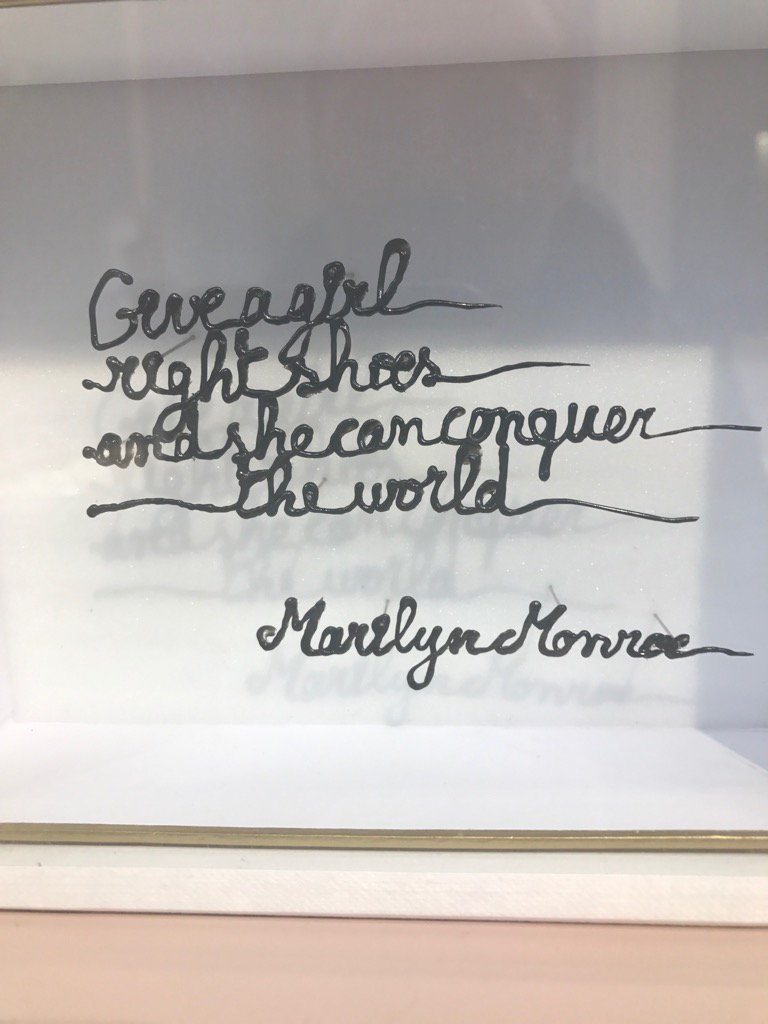 Give a girl
right shoes
and she can conquer
the world
Marilyn Monroe